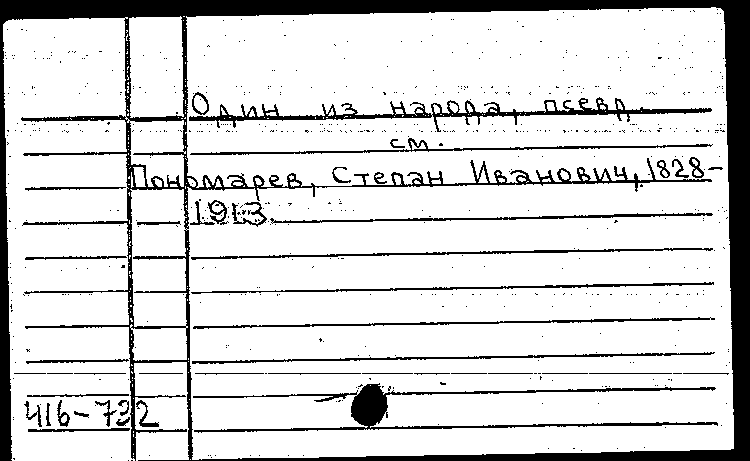 Один из народа, псевд.
см.
Пономарев, Степан Иванович, 1828-
1913.
416-732